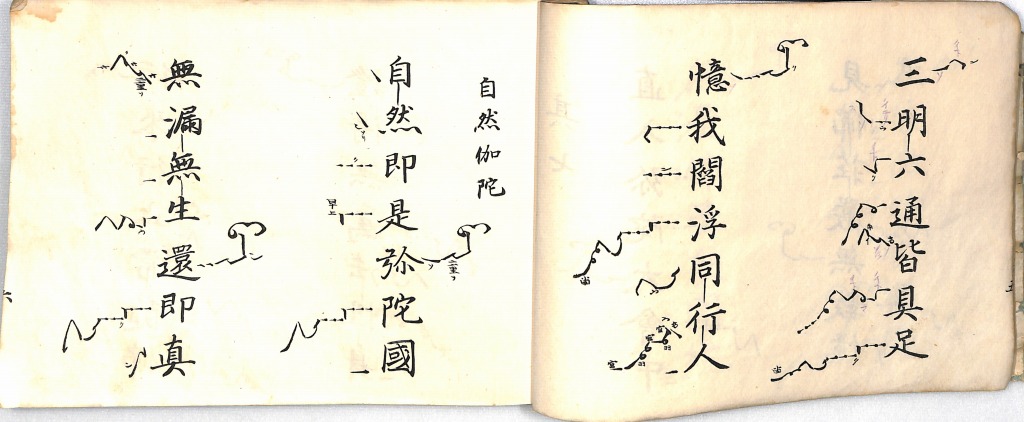 三明六通皆具足
憶我閻浮同行人
自然伽陀
自然即是弥陀國
無漏無生還即真